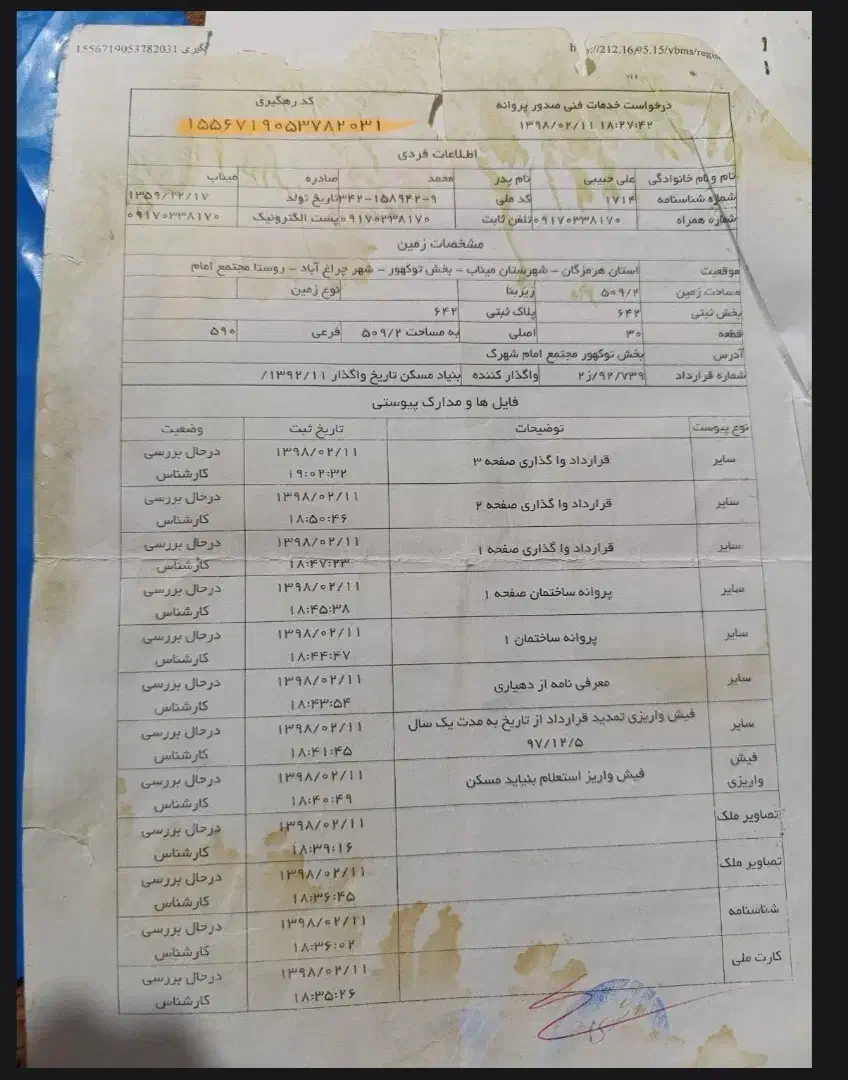 گیری 1556719053782031
http://212.16.95.15/vbms/regis
درخواست خدمات فنی صدور پروانه
۱۳۹۸/۰۲/۱۱ ۱۸:۲۷:۴۲
کد رهگیری
۱۵۵۶۷۱۹۰۵۳۷۸۲۰۳۱
اطلاعات فردی
نام و نام خانوادگی علی حبیبی نام پدر محمد صادره میناب
شماره شناسنامه ۱۷۱۴ کد ملی ۳۴۲-۱۵۸۹۴۲-۹ تاریخ تولد
شماره همراه ۰۹۱۷۰۳۳۸۱۷۰ تلفن ثابت ۰۹۱۷۰۳۳۸۱۷۰ پست الکترونیک ۰۹۱۷۰۳۳۸۱۷۰
مشخصات زمین
موقعیت استان هرمزگان – شهرستان میناب – بخش توکهور – شهر چراغ آباد – روستا مجتمع امام
مساحت زمین ۵۰۹/۲ زیربنا نوع زمین
بخش ثبتی ۶۴۲ پلاک ثبتی ۶۴۲
قطعه ۳۰ اصلی به مساحت ۵۰۹/۲ فرعی ۵۹۰
آدرس بخش توکهور مجتمع امام شهرک
شماره قرارداد ۲ز/۹۲/۷۳۹ واگذار کننده بنیاد مسکن تاریخ واگذار ۱۳۹۲/۱۱/
فایل ها و مدارک پیوستی
نوع پیوست توضیحات تاریخ ثبت وضعیت
سایر قرارداد وا گذاری صفحه ۳ ۱۳۹۸/۰۲/۱۱ ۱۹:۰۲:۳۲ درحال بررسی کارشناس
سایر قرارداد وا گذاری صفحه ۲ ۱۳۹۸/۰۲/۱۱ ۱۸:۵۰:۴۶ درحال بررسی کارشناس
سایر قرارداد وا گذاری صفحه ۱ ۱۳۹۸/۰۲/۱۱ ۱۸:۴۷:۲۳ درحال بررسی کارشناس
سایر پروانه ساختمان صفحه ۱ ۱۳۹۸/۰۲/۱۱ ۱۸:۴۵:۳۸ درحال بررسی کارشناس
سایر پروانه ساختمان ۱ ۱۳۹۸/۰۲/۱۱ ۱۸:۴۴:۴۷ درحال بررسی کارشناس
سایر معرفی نامه از دهیاری ۱۳۹۸/۰۲/۱۱ ۱۸:۴۳:۵۴ درحال بررسی کارشناس
سایر فیش واریزی تمدید قرارداد از تاریخ به مدت یک سال ۹۷/۱۲/۵ ۱۳۹۸/۰۲/۱۱ ۱۸:۴۱:۴۵ درحال بررسی کارشناس
فیش واریزی فیش واریز استعلام بنیاید مسکن ۱۳۹۸/۰۲/۱۱ ۱۸:۴۰:۴۹ درحال بررسی کارشناس
تصاویر ملک ۱۳۹۸/۰۲/۱۱ ۱۸:۳۹:۱۶ درحال بررسی کارشناس
تصاویر ملک ۱۳۹۸/۰۲/۱۱ ۱۸:۳۶:۴۵ درحال بررسی کارشناس
شناسنامه ۱۳۹۸/۰۲/۱۱ ۱۸:۳۶:۰۲ درحال بررسی کارشناس
کارت ملی ۱۳۹۸/۰۲/۱۱ ۱۸:۳۵:۲۶ درحال بررسی کارشناس